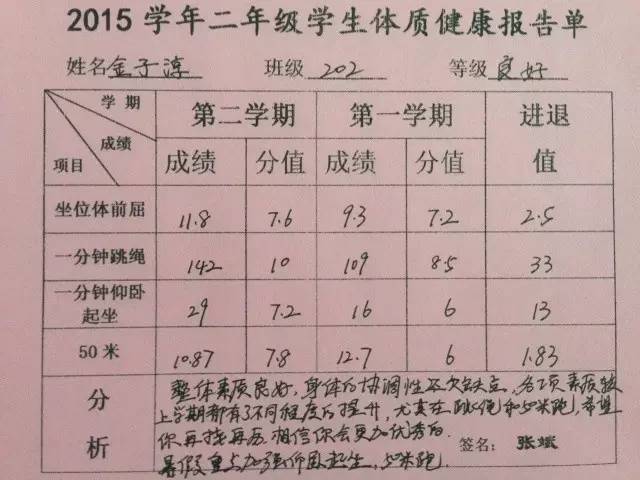 2015 学年二年级学生体质健康报告单
姓名 金子淳 班级 202 等级 良好
学期 成绩 项目 第二学期 第一学期 进退值
成绩 分值 成绩 分值
坐位体前屈 11.8 7.6 9.3 7.2 2.5
一分钟跳绳 142 10 109 8.5 33
一分钟仰卧起坐 29 7.2 16 6 13
50米 10.87 7.8 12.7 6 1.83
分析
整体素质良好,身体的协调性还欠缺点,各项素质较
上学期都有了不同程度的提升,尤其在跳绳和50米跑,希望
你再接再厉.相信你会更加优秀的.
签名: 张斌
暑假重点加强仰卧起坐,50米跑.